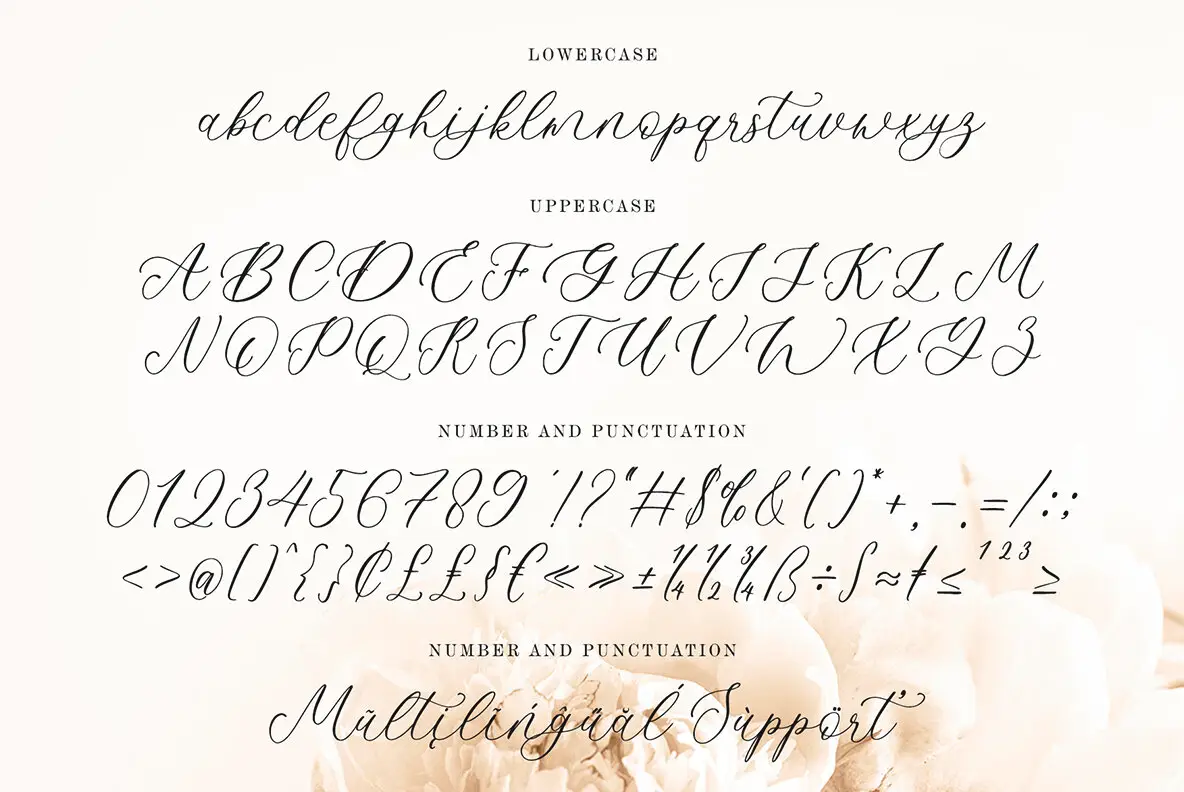 LOWERCASE
abcdefghijklmnopqrstuvwxyz
UPPERCASE
ABCDEFGHIJKLM
NOPQRSTUVWXYZ
NUMBER AND PUNCTUATION
0123456789'!?"#$‰&'()*+,-.=/:;
<>@[]^{}₡££§€≪≫±¼½¾ß÷∫≈≠≤¹²³≥
NUMBER AND PUNCTUATION
Mũltįlĩńĝűăĺ Sùppör̈ť